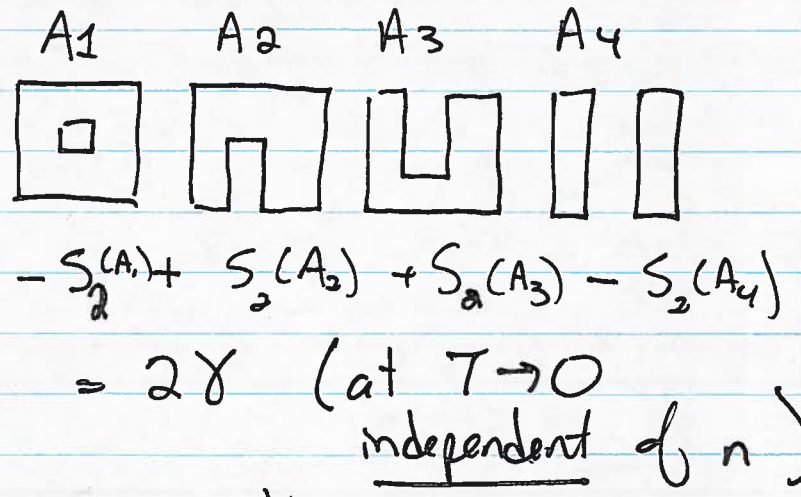 A1 A2 A3 A4
- S₂(A₁) + S₂(A₂) + S₂(A₃) - S₂(A₄)
= 2γ (at T → 0
independent of n)